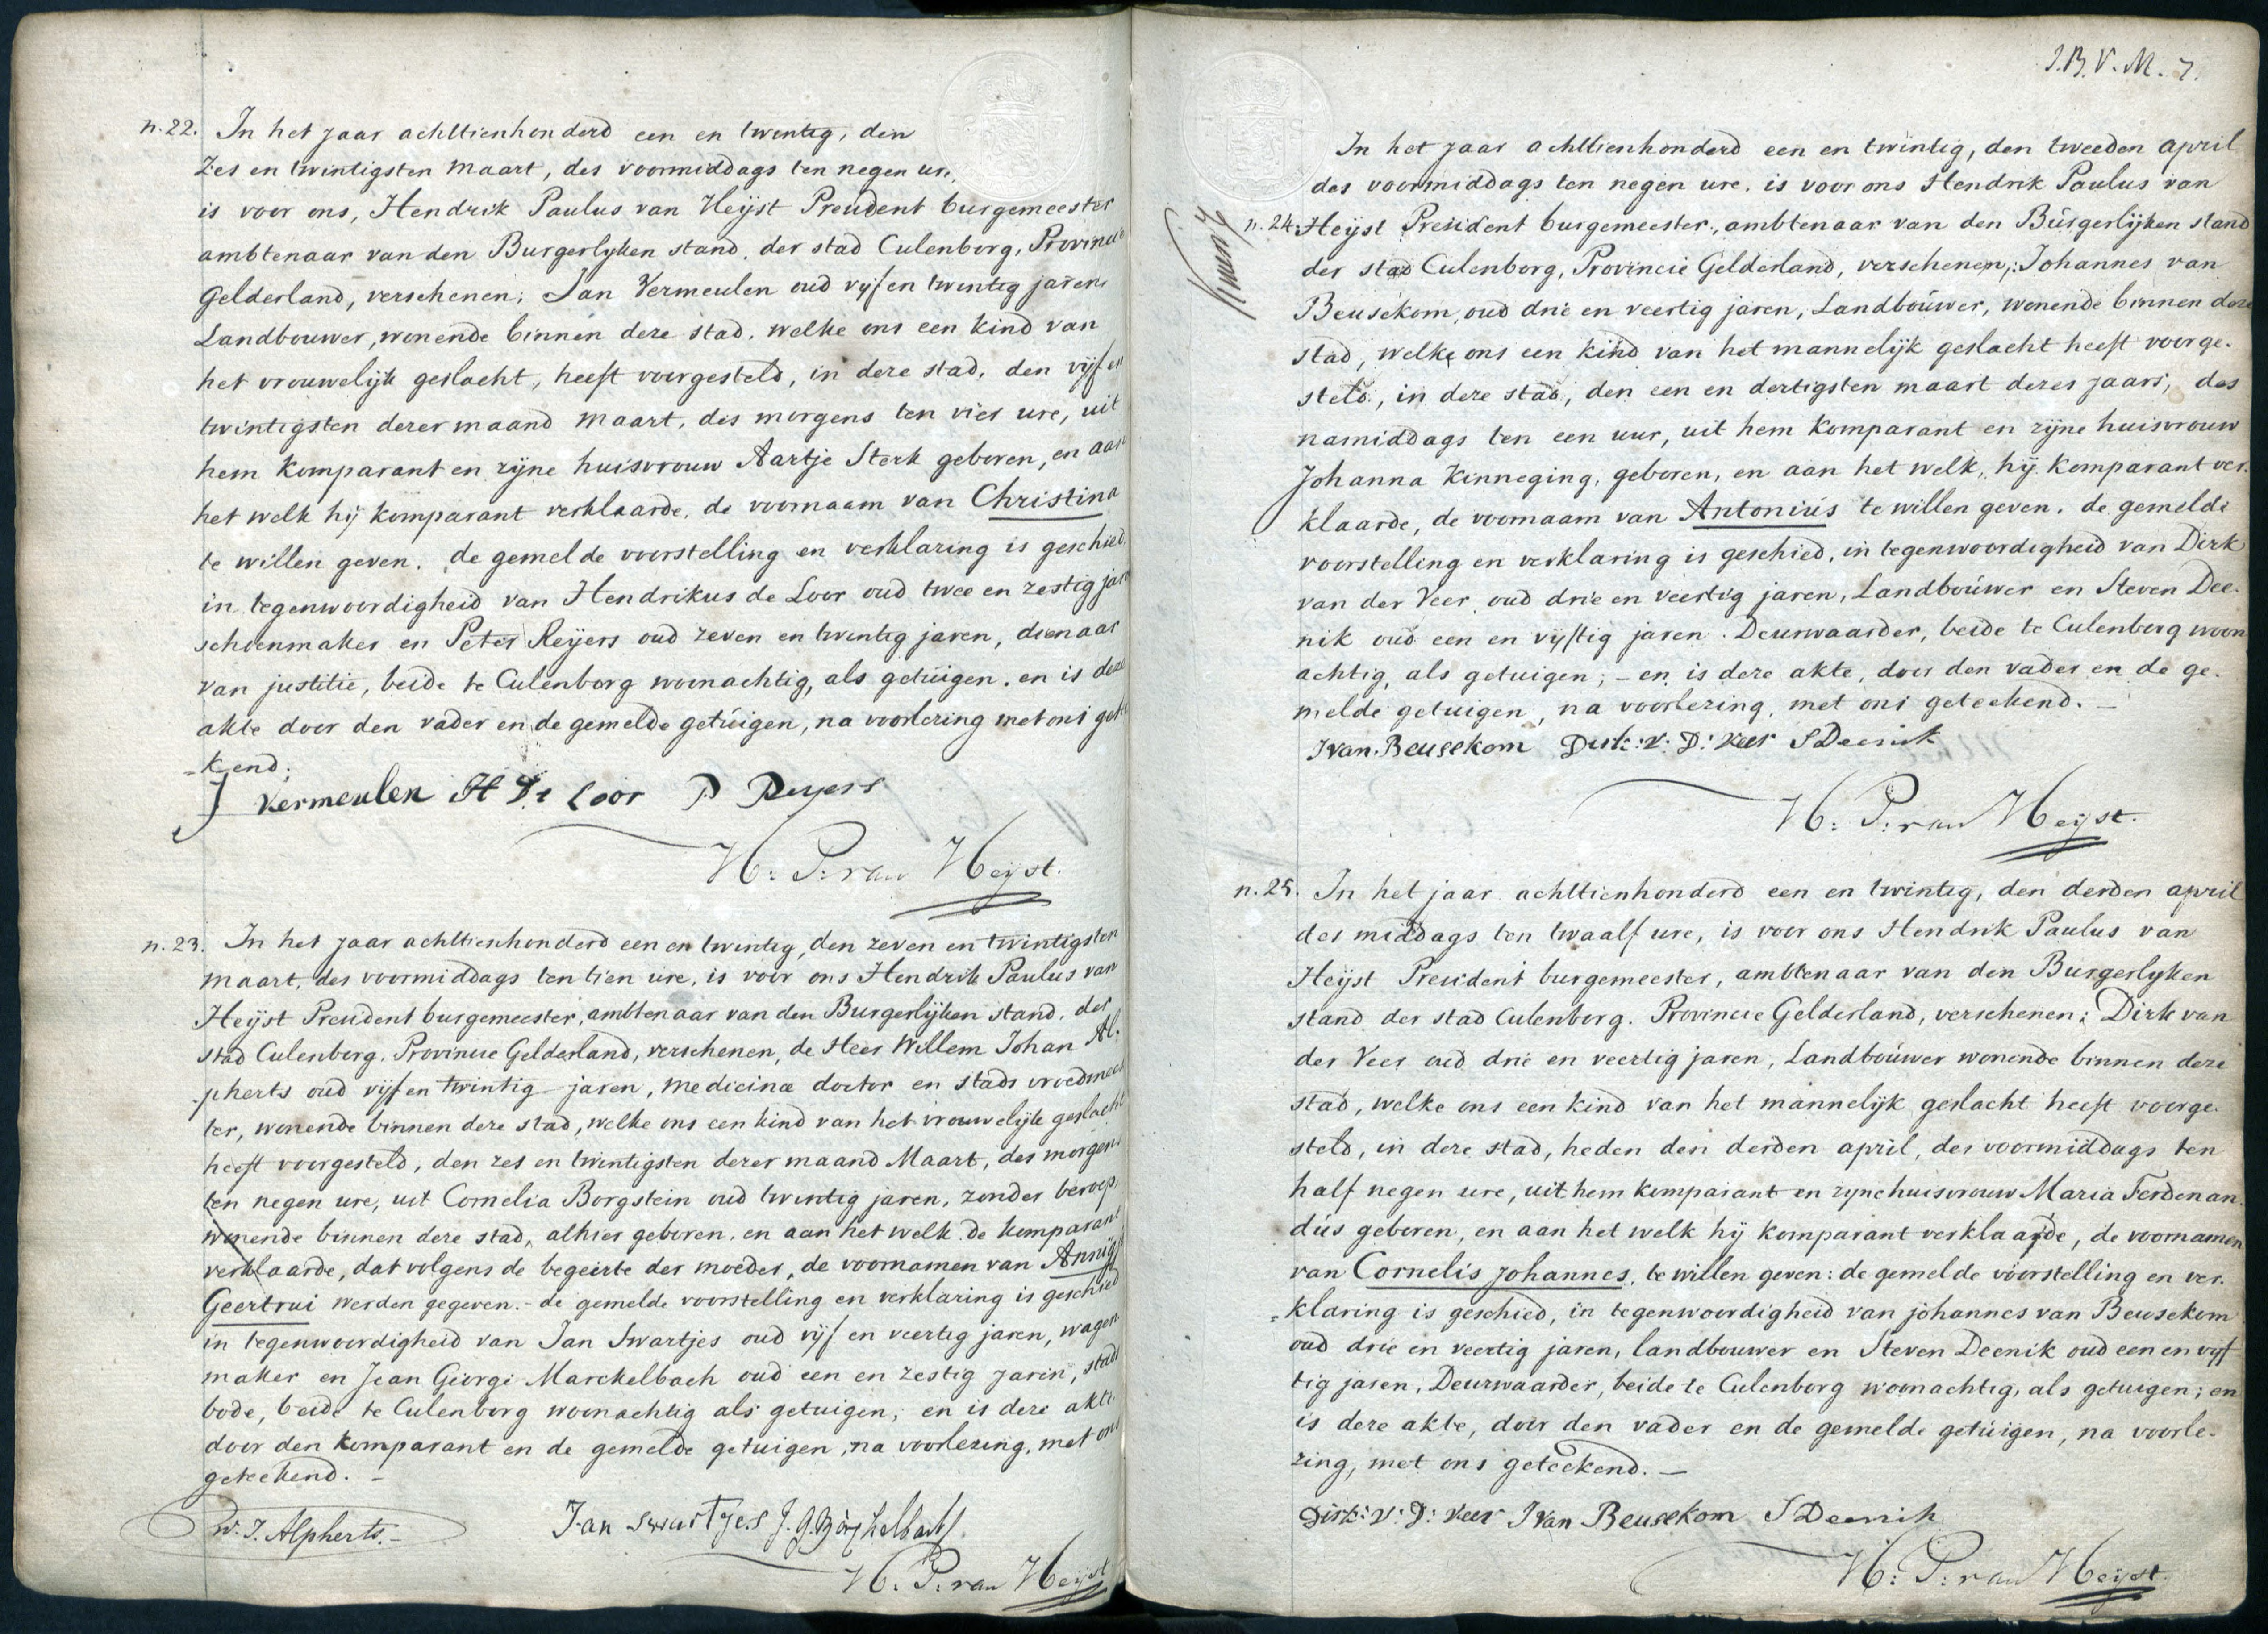 n. 22. In het jaar achttienhonderd een en twintig, den
zes en twintigsten maart, des voormiddags ten negen ure,
is voor ons, Hendrik Paulus van Heijst President burgemeester
ambtenaar van den Burgerlyken stand, der stad Culenborg, Provincie
Gelderland, verschenen; Jan Vermeulen oud vyf en twintig jaren
Landbouwer, wonende binnen deze stad, welke ons een kind van
het vrouwelijk geslacht, heeft voorgesteld, in deze stad, den vijf en
twintigsten dezer maand maart, des morgens ten vier ure, uit
hem komparant en zijne huisvrouw Aartje Sterk geboren, en aan
het welk hij komparant verklaarde, de voornaam van Christina
te willen geven. de gemelde voorstelling en verklaring is geschied
in tegenwoordigheid van Hendrikus de Loor oud twee en zestig jaren
schoenmaker en Peter Reijers oud zeven en twintig jaren, dienaar
van justitie, beide te Culenborg woonachtig, als getuigen. en is deze
akte door den vader en de gemelde getuigen, na voorlezing met ons getee
-kend;
J Vermeulen H De Loor P Reyers
H: P: van Heijst.
n. 23. In het jaar achttienhonderd een en twintig, den zeven en twintigsten
maart, des voormiddags ten tien ure, is voor ons Hendrik Paulus van
Heijst President burgemeester, ambtenaar van den Burgerlijken stand, der
stad Culenborg, Provincie Gelderland, verschenen, de Heer Willem Johan Al-
-pherts oud vijf en twintig jaren, medicinæ doctor en stads vroedmees
ter, wonende binnen deze stad, welke ons een kind van het vrouwelijk geslacht
heeft voorgesteld, den zes en twintigsten dezer maand Maart, des morgens
ten negen ure, uit Cornelia Borgstein oud twintig jaren, zonder beroep,
wonende binnen deze stad, alhier geboren, en aan het welk de komparant
verklaarde, dat volgens de begeerte der moeder, de voornamen van Annig
Geertrui werden gegeven. - de gemelde voorstelling en verklaring is geschied
in tegenwoordigheid van Jan Swartjes oud vijf en veertig jaren, wagen
maker en Jean George Marckelbach oud een en zestig jaren, stads
bode, beide te Culenborg woonachtig als getuigen; en is deze akte
door den komparant en de gemelde getuigen, na voorlezing, met ons
geteekend. -
W. J. Alpherts. - Jan Swartjes
H: P: van Heijst
J. B. V. M. 7.
In het jaar achttienhonderd een en twintig, den tweeden april
des voormiddags ten negen ure, is voor ons Hendrik Paulus van
n. 24. Heijst President burgemeester, ambtenaar van den Burgerlijken stand
der stad Culenborg, Provincie Gelderland, verschenen, Johannes van
Beusekom, oud drie en veertig jaren, Landbouwer, wonende binnen deze
stad, welke ons een kind van het mannelijk geslacht heeft voorge-
steld, in deze stad, den een en dertigsten maart dezes jaars, des
namiddags ten een uur, uit hem komparant en zijne huisvrouw
Johanna Kinneging, geboren, en aan het welk, hij komparant ver-
klaarde, de voornaam van Antonius te willen geven. de gemelde
voorstelling en verklaring is geschied, in tegenwoordigheid van Dirk
van der Veer oud drie en veertig jaren, Landbouwer en Steven Dee-
nik oud een en vijftig jaren. Deurwaarder, beide te Culenborg woon
achtig, als getuigen; - en is deze akte, door den vader en de ge-
melde getuigen, na voorlezing, met ons geteekend. -
J van Beusekom Dirk: v: D: Veer S Deenik
H: P: van Heijst.
n. 25. In het jaar achttienhonderd een en twintig, den derden april
des middags ten twaalf ure, is voor ons Hendrik Paulus van
Heijst President burgemeester, ambtenaar van den Burgerlyken
stand der stad Culenborg. Provincie Gelderland, verschenen; Dirk van
der Veer oud drie en veertig jaren, Landbouwer wonende binnen deze
stad, welke ons een kind van het mannelijk geslacht heeft voorge-
steld, in deze stad, heden den derden april, des voormiddags ten
half negen ure, uit hem komparant en zyne huisvrouw Maria Ferdenan-
dus geboren, en aan het welk hij komparant verklaarde, de voornamen
van Cornelis Johannes, te willen geven: de gemelde voorstelling en ver-
=klaring is geschied, in tegenwoordigheid van Johannes van Beusekom
oud drie en veertig jaren, landbouwer en Steven Deenik oud een en vijf
tig jaren, Deurwaarder, beide te Culenborg woonachtig, als getuigen; en
is deze akte, door den vader en de gemelde getuigen, na voorle-
zing, met ons geteekend. -
Dirk: v: D: Veer J Van Beusekom S Deenik
H: P: van Heijst.